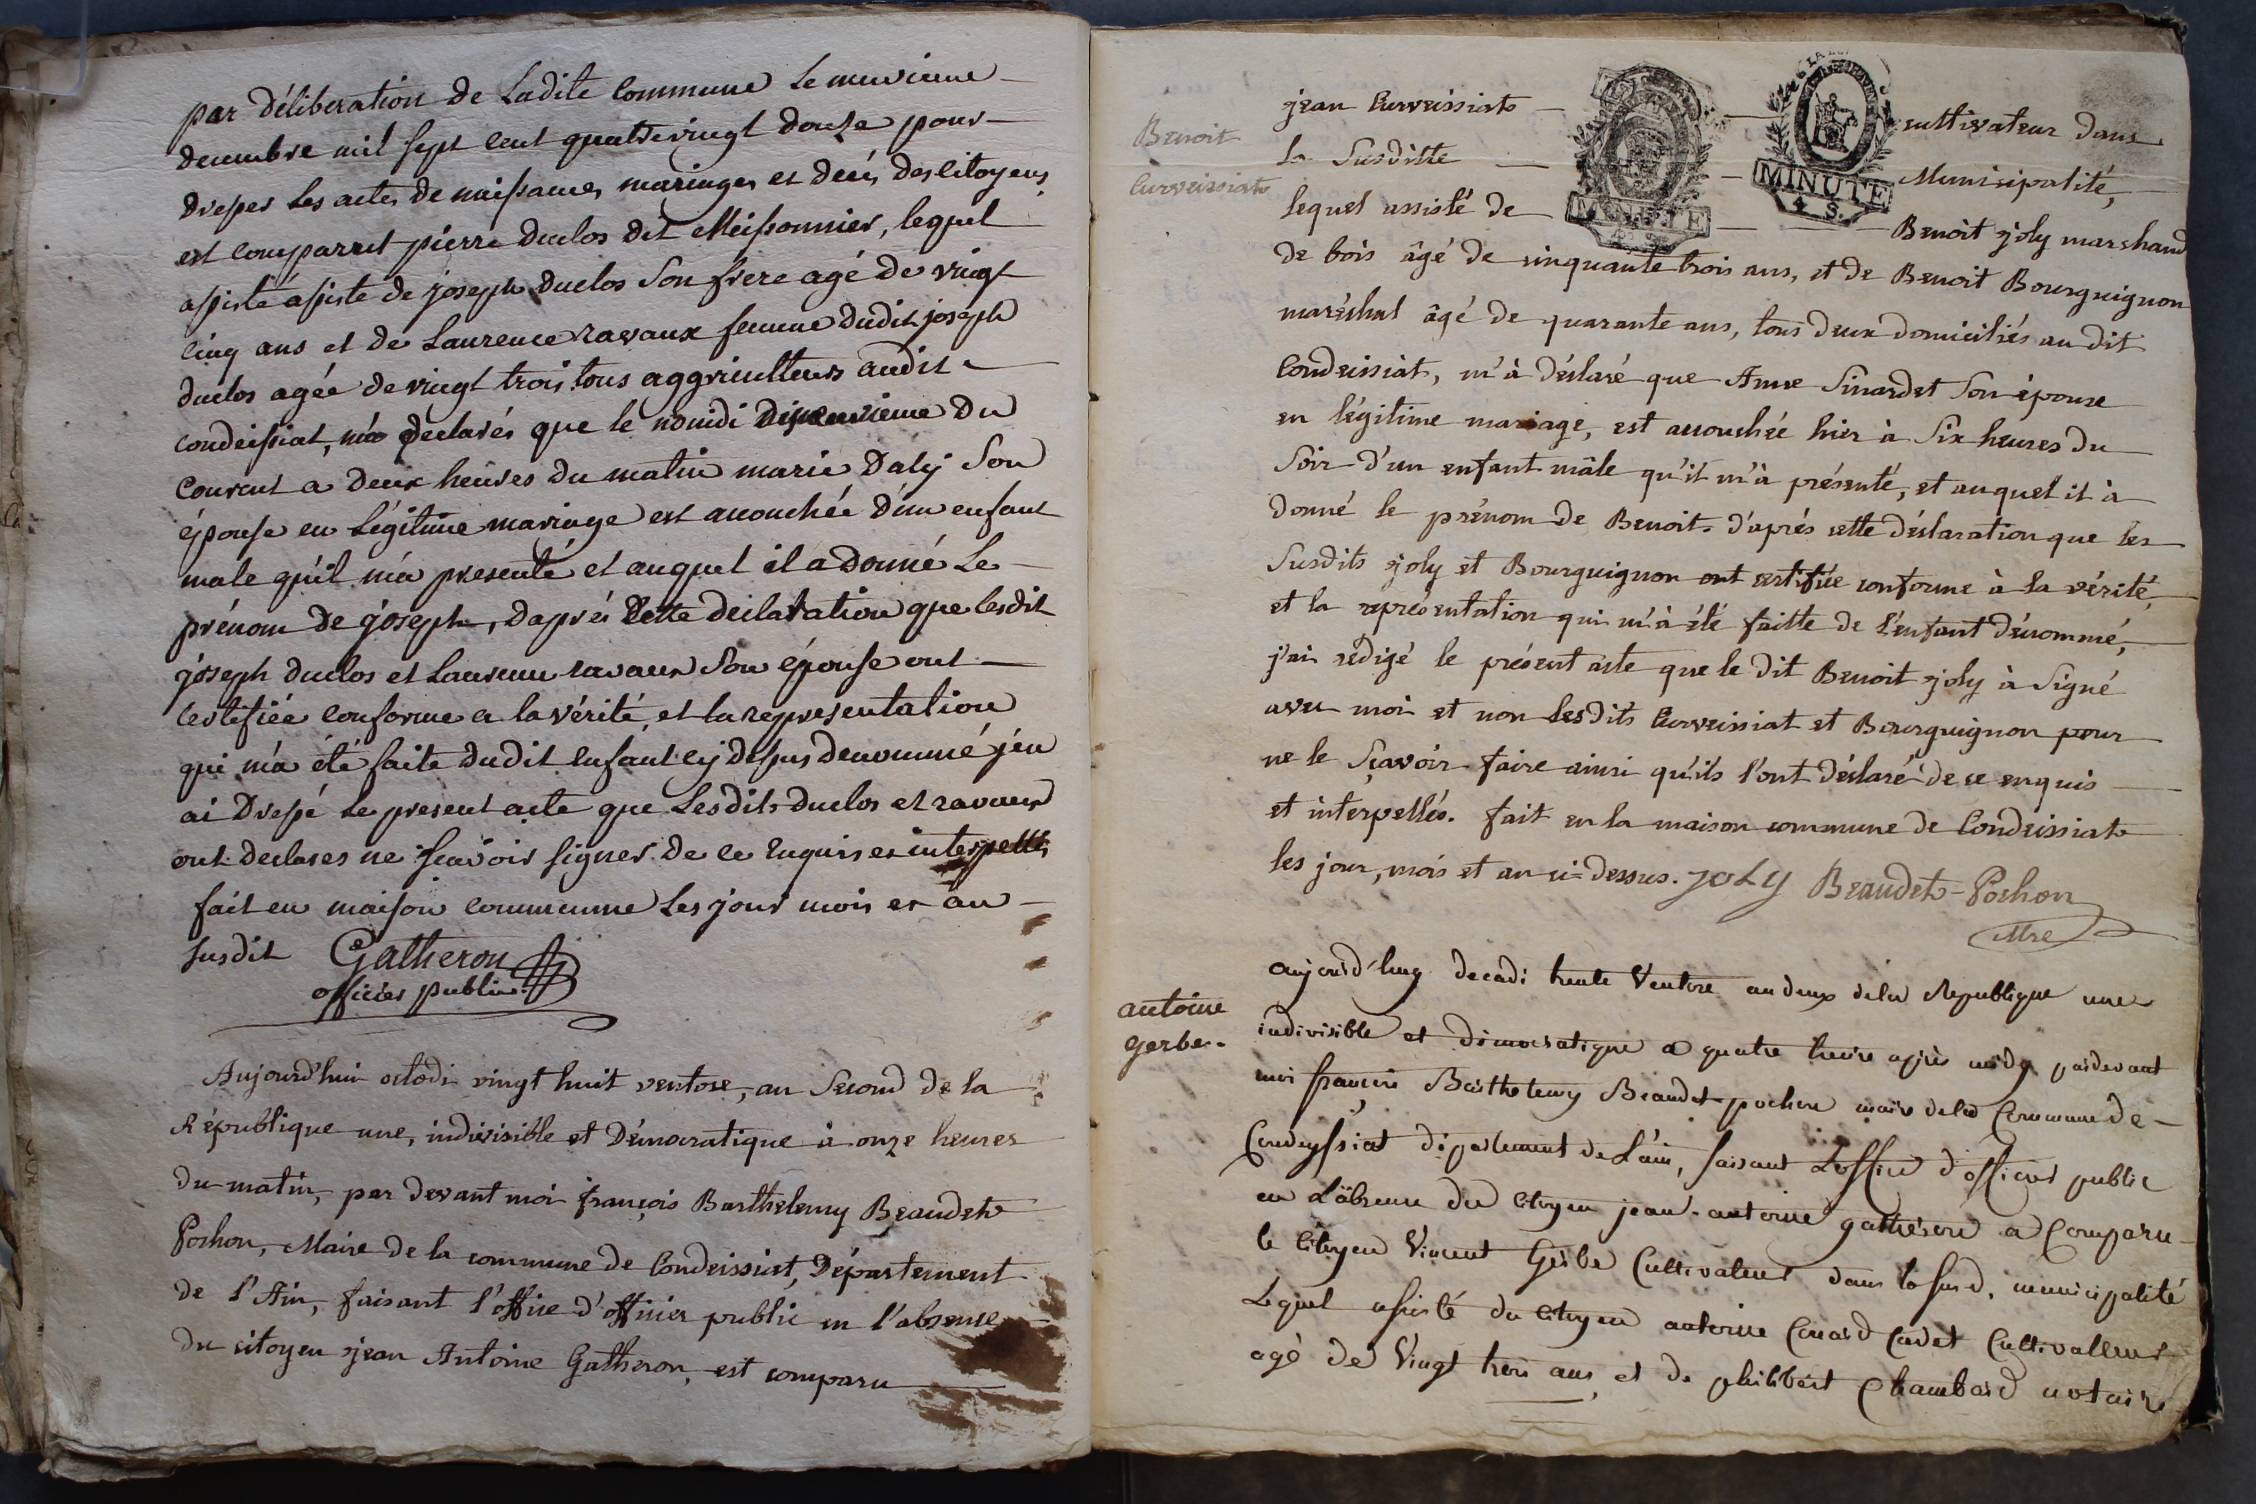 par déliberation de Ladite Commune Le neuvieme
decembre mil sept cent quatrevingt douze pour
dresser Les actes de naissances, mariages et decés des citoyens
est comparut pierre duclos dit Meissonnier, lequel
assisté assiste de joseph duclos Son frere agé de vingt
cinq ans et de Laurence ravaux femme dudit joseph
duclos agée de vingt trois tous aggriculteurs audit
condeissiat, declarés que le nonidi dixneuvieme du
Courent a deux heures du matin marie Daly Son
épouse en Légitime mariage est accouchée d'un enfant
male qu'il m'a presenté et auquel il a donné Le
prénom de joseph, daprés Cette declaration que lesdit
joseph duclos et Laurence ravaux Son épouse ont
Certifiée conforme a la vérité, et la representation
qui m'a été faite dudit enfant cy dessus denommé j'en
ai dressé Le present acte que Lesdits duclos et ravaux
ont declares ne scavoir signer de ce Enquis et interpellés
fait en maison commune Les jour mois et an
susdit Gatheron
officier public.
Aujourd'hui octodi vingt huit ventose, an Second de la
République une, indivisible et Démocratique à onze heures
du matin, par devant moi françois Barthelemy Beaudet
Pochon, Maire de la commune de Condeissiat, Département
de l'Ain, faisant l'office d'officier public en l'absence
du citoyen jean Antoine Gatheron, est comparu
Benoit
Curveissiat
jean Curveissiat cultivateur dans
la Susditte Municipalité,
lequel assisté de Benoit joly marchand
MINUTE
4 S.
MINUTE
de bois âgé de cinquante trois ans, et de Benoit Bourguignon
maréchal âgé de quarante ans, tous deux domiciliés au dit
Condeissiat, m'à déclaré que Anne Sinardet Son épouse
en légitime mariage, est accouchée hier à Six heures du
Soir d'un enfant mâle qu'il m'à présenté, et auquel il à
donné le prénom de Benoit. d'aprés cette déclaration que les
Susdits joly et Bourguignon ont certifiée conforme à la vérité,
et la représentation qui m'à été faitte de l'enfant dénommé,
j'ai rédigé le présent acte que le dit Benoit joly à Signé
avec moi et non Lesdits Curveissiat et Bourguignon pour
ne le Sçavoir faire ainsi qu'ils l'ont déclaré de ce enquis
et interpellés. fait en la maison commune de Condeissiat
les jour, mois et an ci-dessus. JOLY Beaudet-Pochon
Mre
antoine
gerbe.
aujourd'huy decadi trente Ventose an deux dela Republique une
indivisible et démocratique a quatre heure après midy pardevant
moi françois Barthelemy Beaudet-pochon maire dela Commune de
Condeyssiat département de L'ain, faisant Loffice d'officier public
en L'absence du Citoyen jean-antoine gatheron a Comparu
le Citoyen Vincent Gerbe Cultivateur dans la susd. municipalité
Lequel assisté du Citoyen antoine Cadet Cultivateur
agé de Vingt trois ans, et de philibert Chambard notaire